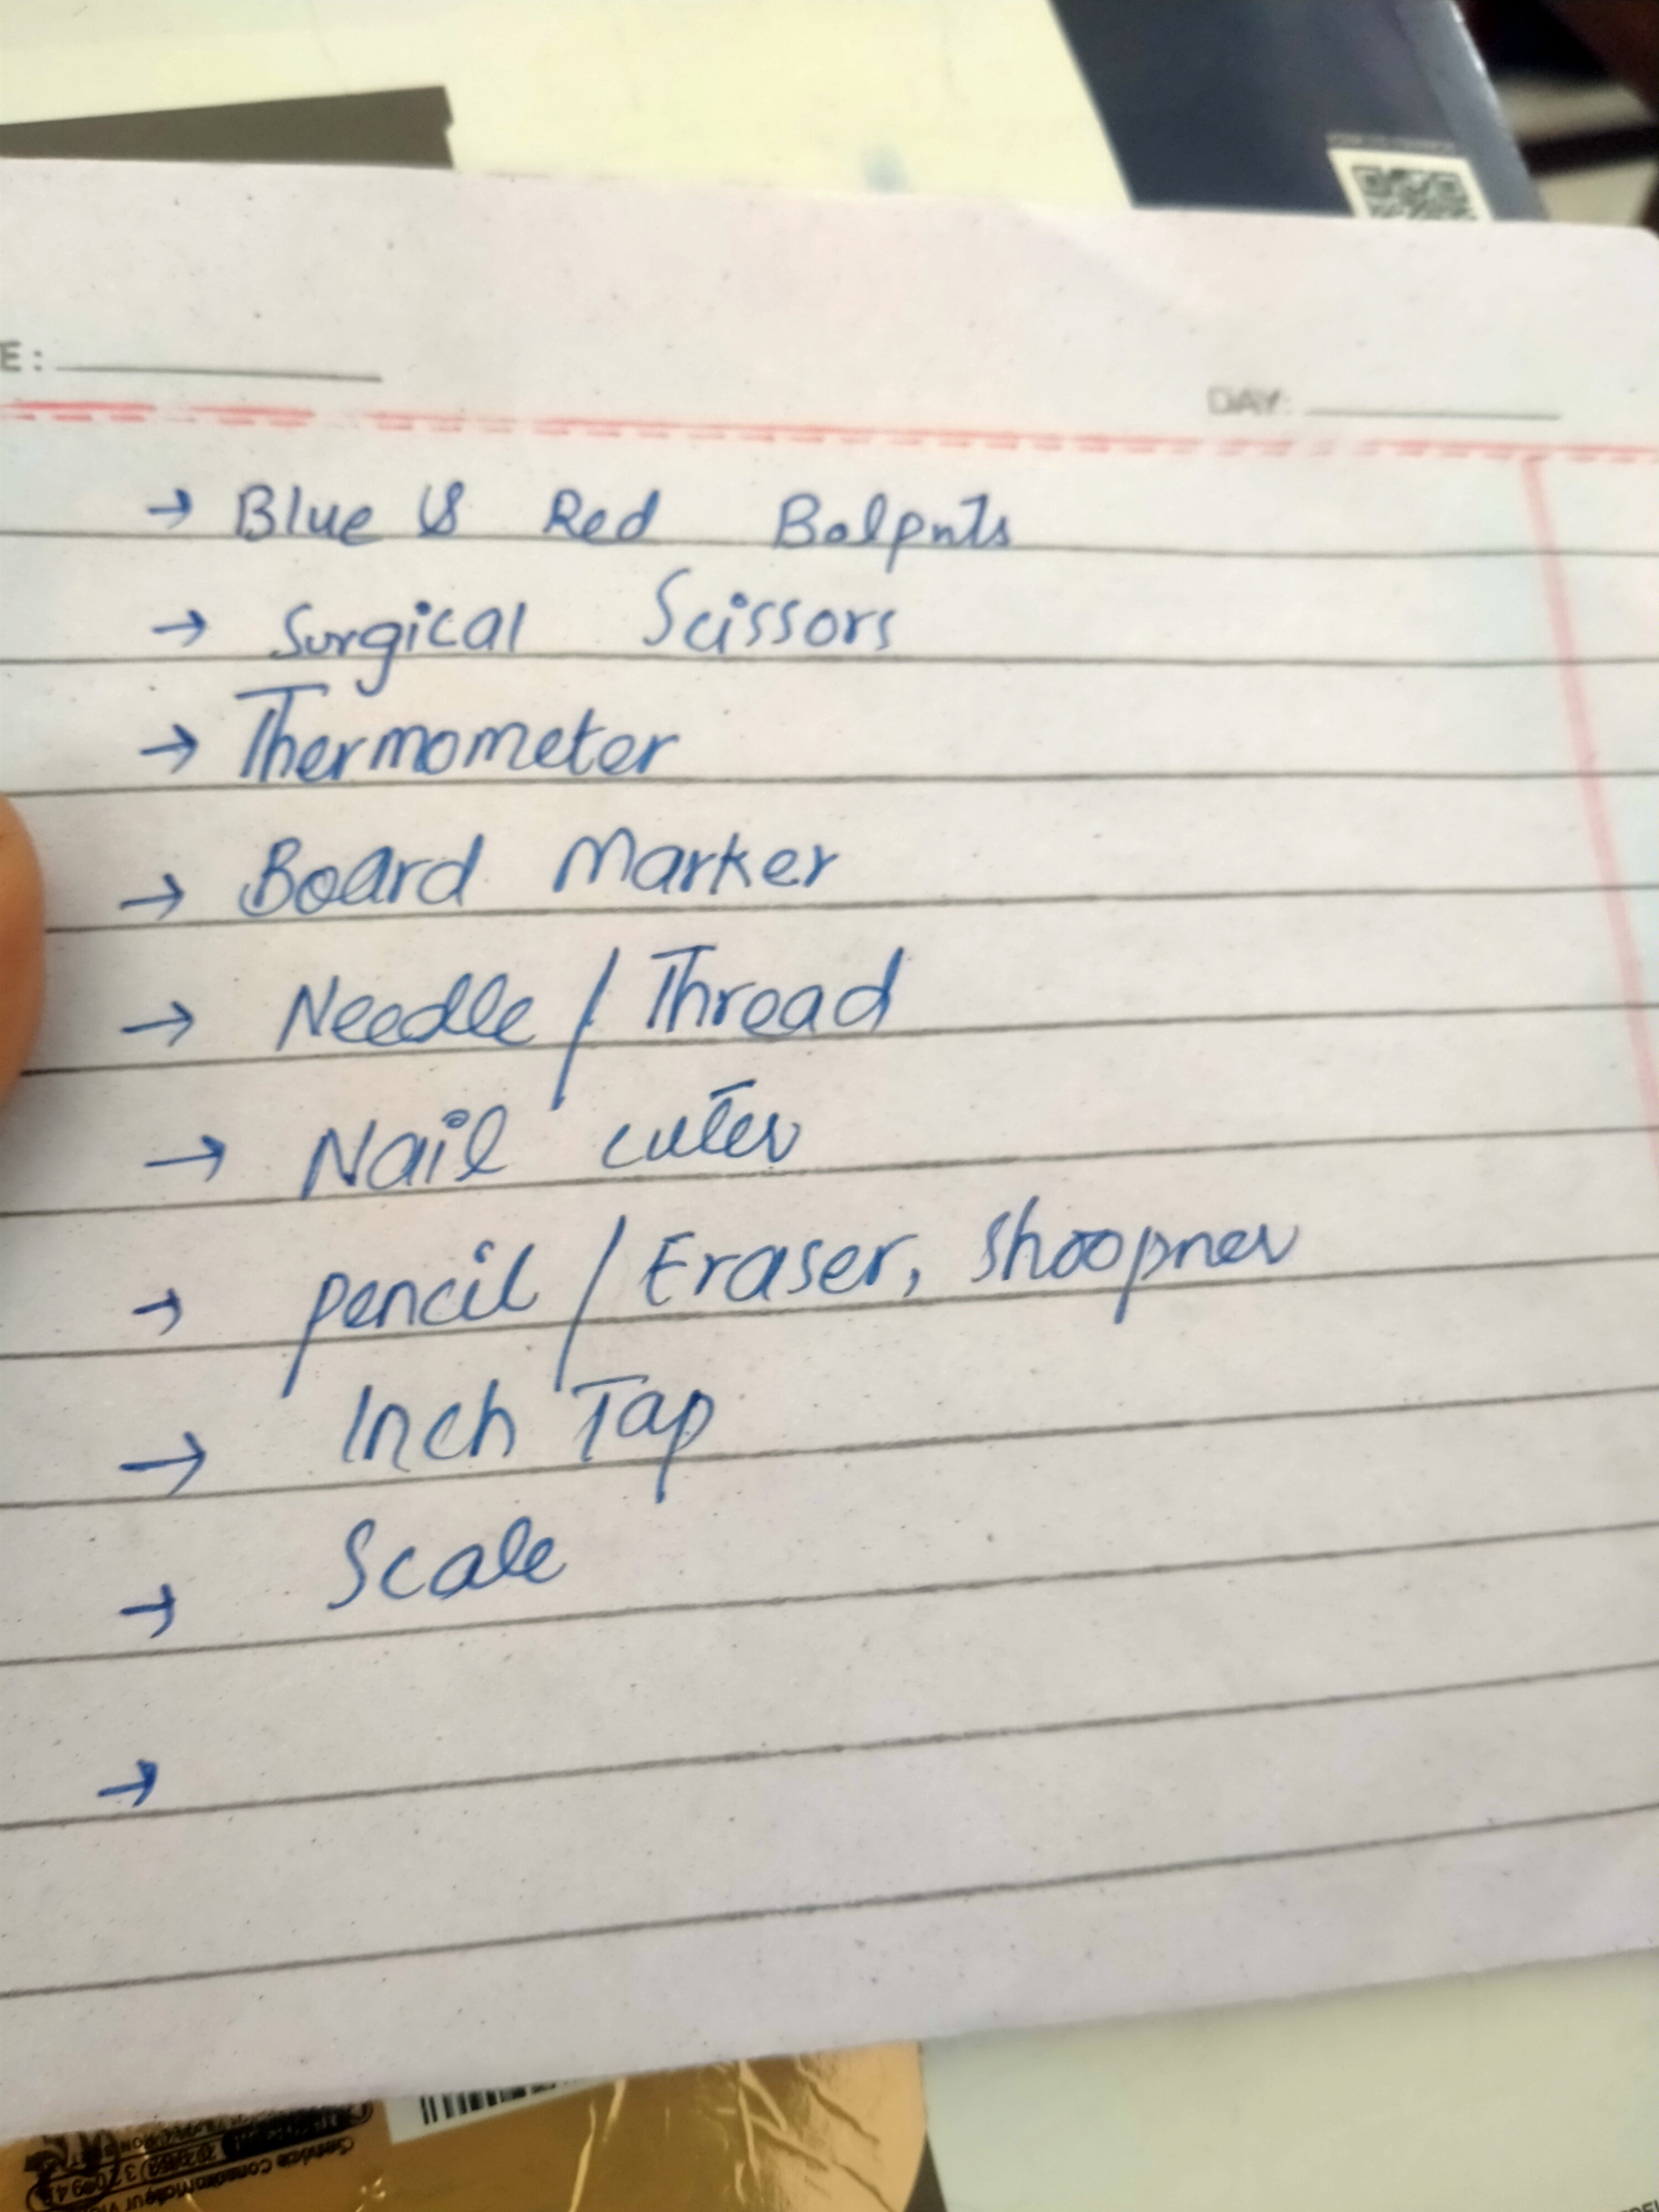 E:
DAY:
→ Blue & Red Bolpnts
→ Surgical Scissors
→ Thermometer
→ Board Marker
→ Needle / Thread
→ Nail cuter
→ pencil / Eraser, Shoopner
→ Inch Tap
→ Scale
→